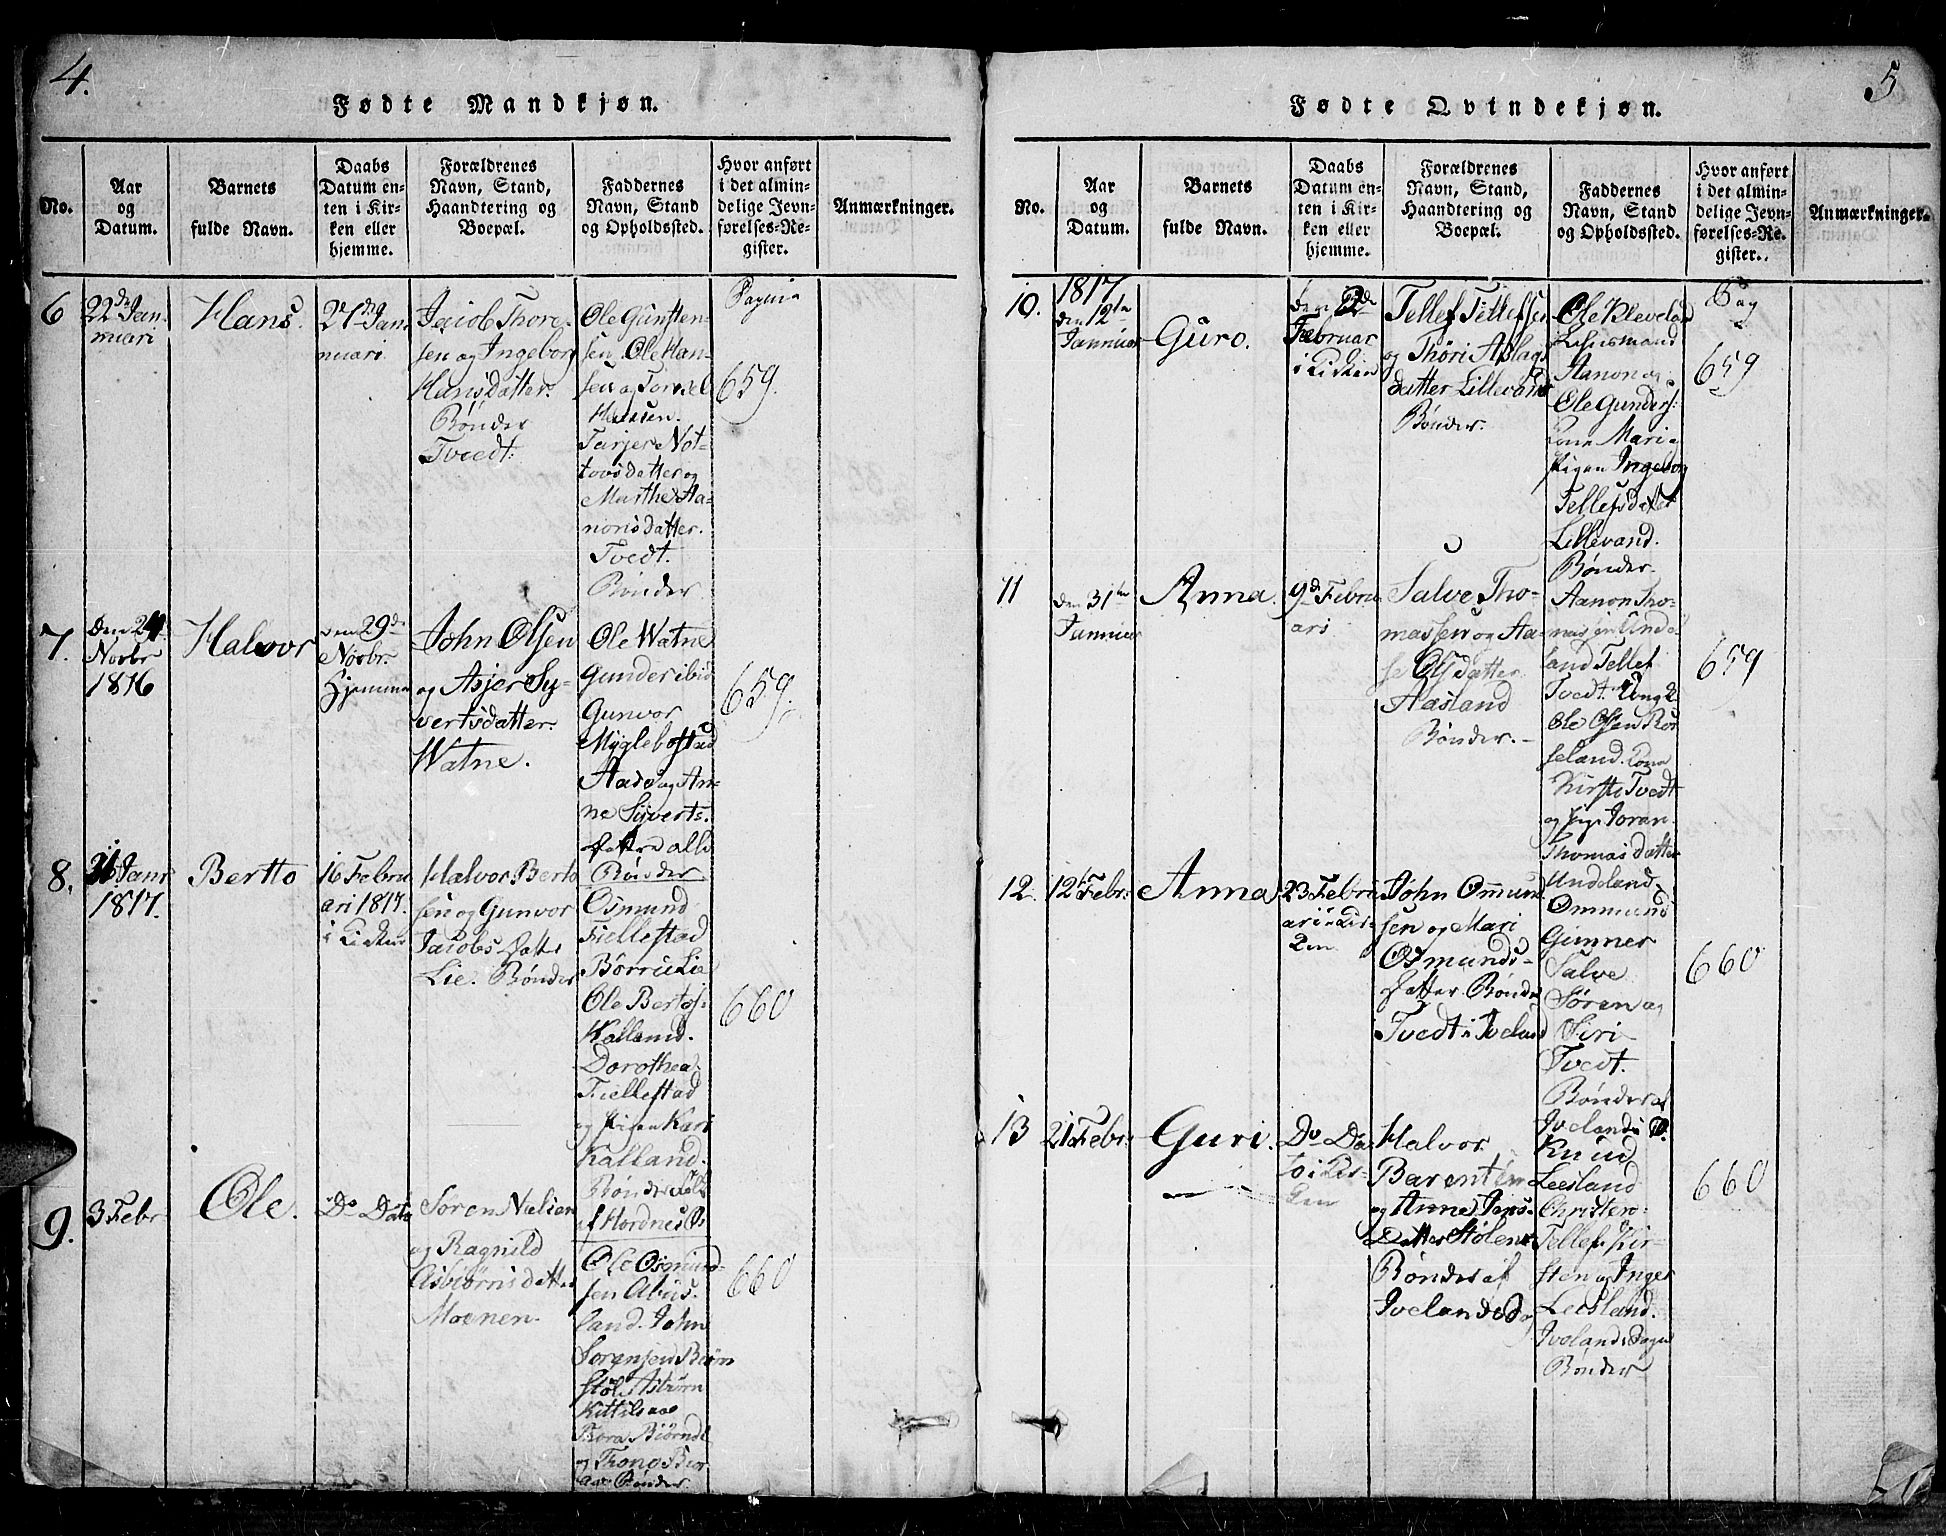 4.
Fødte Mandkjøn.
No.
Aar
og
Datum.
Barnets
fulde Navn.
Daabs
Datum en-
ten i Kir-
ken eller
hjemme.
Forældrenes
Navn, Stand,
Haandtering og
Boepæl.
Faddernes
Navn, Stand
og Opholdssted.
Hvor anført
i det almin-
delige Jevn-
førelses-Re-
gister.
Anmærkninger.
6
22de Jan-
nuari
Hans.
27de Jan-
nuari.
Jacob Thore-
sen og Ingeborg
Hansdatter.
Bønder
Tvedt.
Ole Gunsten-
sen, Ole Han-
sen og Torkel
Hansen.
Tarjer Not-
tovsdatter og
Marthe Aa-
nonsdatter.
Tvedt.
Bønder
Pagina
659.
7.
Den 24
Novbr
1816
Halvor
den 29de
Novbr.
Hjemme
John Olsen
og Asjer Sy-
vertsdatter.
Watne.
Ole Watne
Gunder ibid
Gunvor
Myglebostad
Aade og An-
ne Syverts-
datter alle
Bønder
659.
8.
31 Janr
1817.
Bertto
16 Febru
ari 1817.
i Kirken
Halvor Berto
sen og Gunvor
Jacobs datte
Lie. Bønder
Osmund
Fiellestad
Børru Lie
Ole Bertos:
Kalland.
Dorothea
Fiellestad
og Pigen Kari
Kalland.
Bønder
af Hordnes
660
9.
3 Febr
Ole.
Do Dato
Søren Nielsen
og Ragnild
Asbiørnsdatter
Moenen.
Ole Osmund-
sen Abus-
land. John
Sorensen Biøn
støl Asbiørn
Kittilsaae
Thora Biørnd
og Thong Bior
aae Bønder
660
5
Fødte Qvindekjøn.
No.
Aar
og
Datum.
Barnets
fulde Navn.
Daabs
Datum en-
ten i Kir-
ken eller
hjemme.
Forældrenes
Navn, Stand,
Haandtering og
Boepæl.
Faddernes
Navn, Stand
og Opholdssted.
Hvor anført
i det almin-
delige Jevn-
førelses-Re-
gister.
Anmærkninger.
10.
1817
den 12te
Januar
Guro.
den 2de
Februar
i Kirken
Tellef Tellefsen
og Thøri Aslags
datter Lillevand
Bønder.
Ole Kleveland
Lehnsmand
Aanon og
Ole Gunders:
Kone Mari
Pigen Ingeborg
Tellefsdatter
Lillevand.
Bønder.
Pag
659
11
den 31te
Januar
Anna.
9de Febru
ari
Salve Tho-
massen og Aa-
se Olsdatter
Aasland
Bønder.
Aanon Tho-
massen Unde-
land Tellef
Tvedt
Ole Olsen Ros
seland. Kone
Kirsti Tvedt
og Pige Joran
Thomas datter
Undeland
659
12.
12te Febr:
Anna
23 Febru
ari i Kir-
ken
John Ommund
sen og Mari
Osmunds-
datter Bønder
Tvedt i Iveland
Ommund
Gimner
Salve
Søren og
Siri
Tvedt.
Bønder af
Ivelands
660
13
21 Febr:
Guri.
Do Da-
to i Kir-
ken
Halvor
Barenten
og Anne Jens-
Datter Stølen
Bønder af
Ivelands Sog
Knud
Leesland
Christen
Tellef Kir-
sten og Inger
Leesland.
Ivelands Sogn
Bønder
660